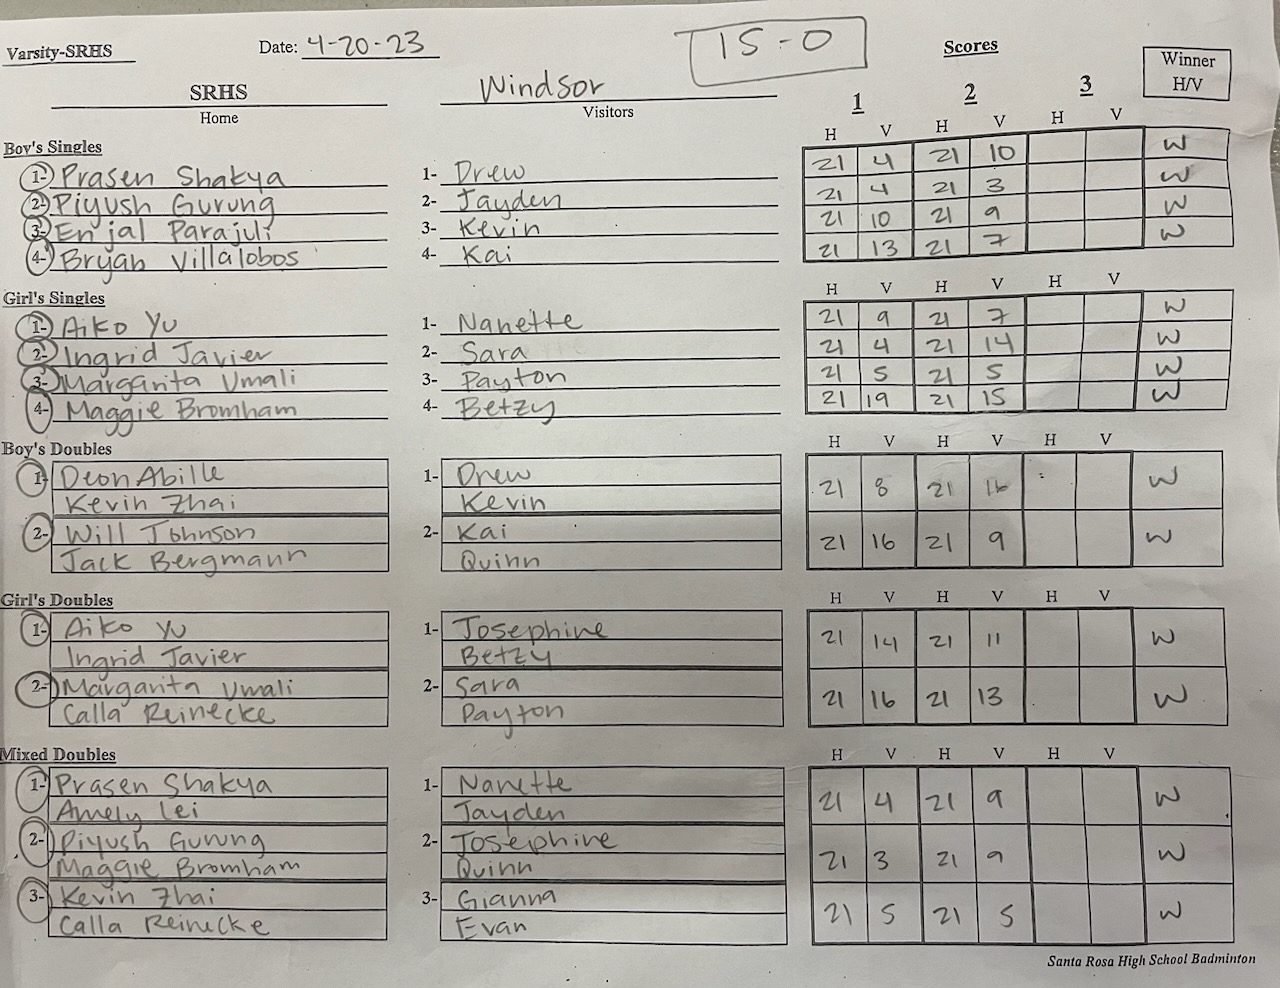 Varsity-SRHS Date: 4-20-23 15-0 Scores Winner H/V
SRHS Windsor 1 2 3
Home Visitors H V H V H V
Boy's Singles
1- Prasen Shakya 1- Drew 21 4 21 10 W
2- Piyush Gurung 2- Jayden 21 4 21 3 W
3- Enjal Parajuli 3- Kevin 21 10 21 9 W
4- Bryan Villalobos 4- Kai 21 13 21 7 W
Girl's Singles H V H V H V
1- Aiko Yu 1- Nanette 21 9 21 7 W
2- Ingrid Javier 2- Sara 21 4 21 14 W
3- Margarita Umali 3- Payton 21 5 21 5 W
4- Maggie Bromham 4- Betzy 21 19 21 15 W
Boy's Doubles H V H V H V
1- Deon Abille 1- Drew 21 8 21 16 W
Kevin Zhai Kevin
2- Will Johnson 2- Kai 21 16 21 9 W
Jack Bergmann Quinn
Girl's Doubles H V H V H V
1- Aiko Yu 1- Josephine 21 14 21 11 W
Ingrid Javier Betzy
2- Margarita Umali 2- Sara 21 16 21 13 W
Calla Reinecke Payton
Mixed Doubles H V H V H V
1- Prasen Shakya 1- Nanette 21 4 21 9 W
Amely Lei Jayden
2- Piyush Gurung 2- Josephine 21 3 21 9 W
Maggie Bromham Quinn
3- Kevin Zhai 3- Gianna 21 5 21 5 W
Calla Reinecke Evan
Santa Rosa High School Badminton